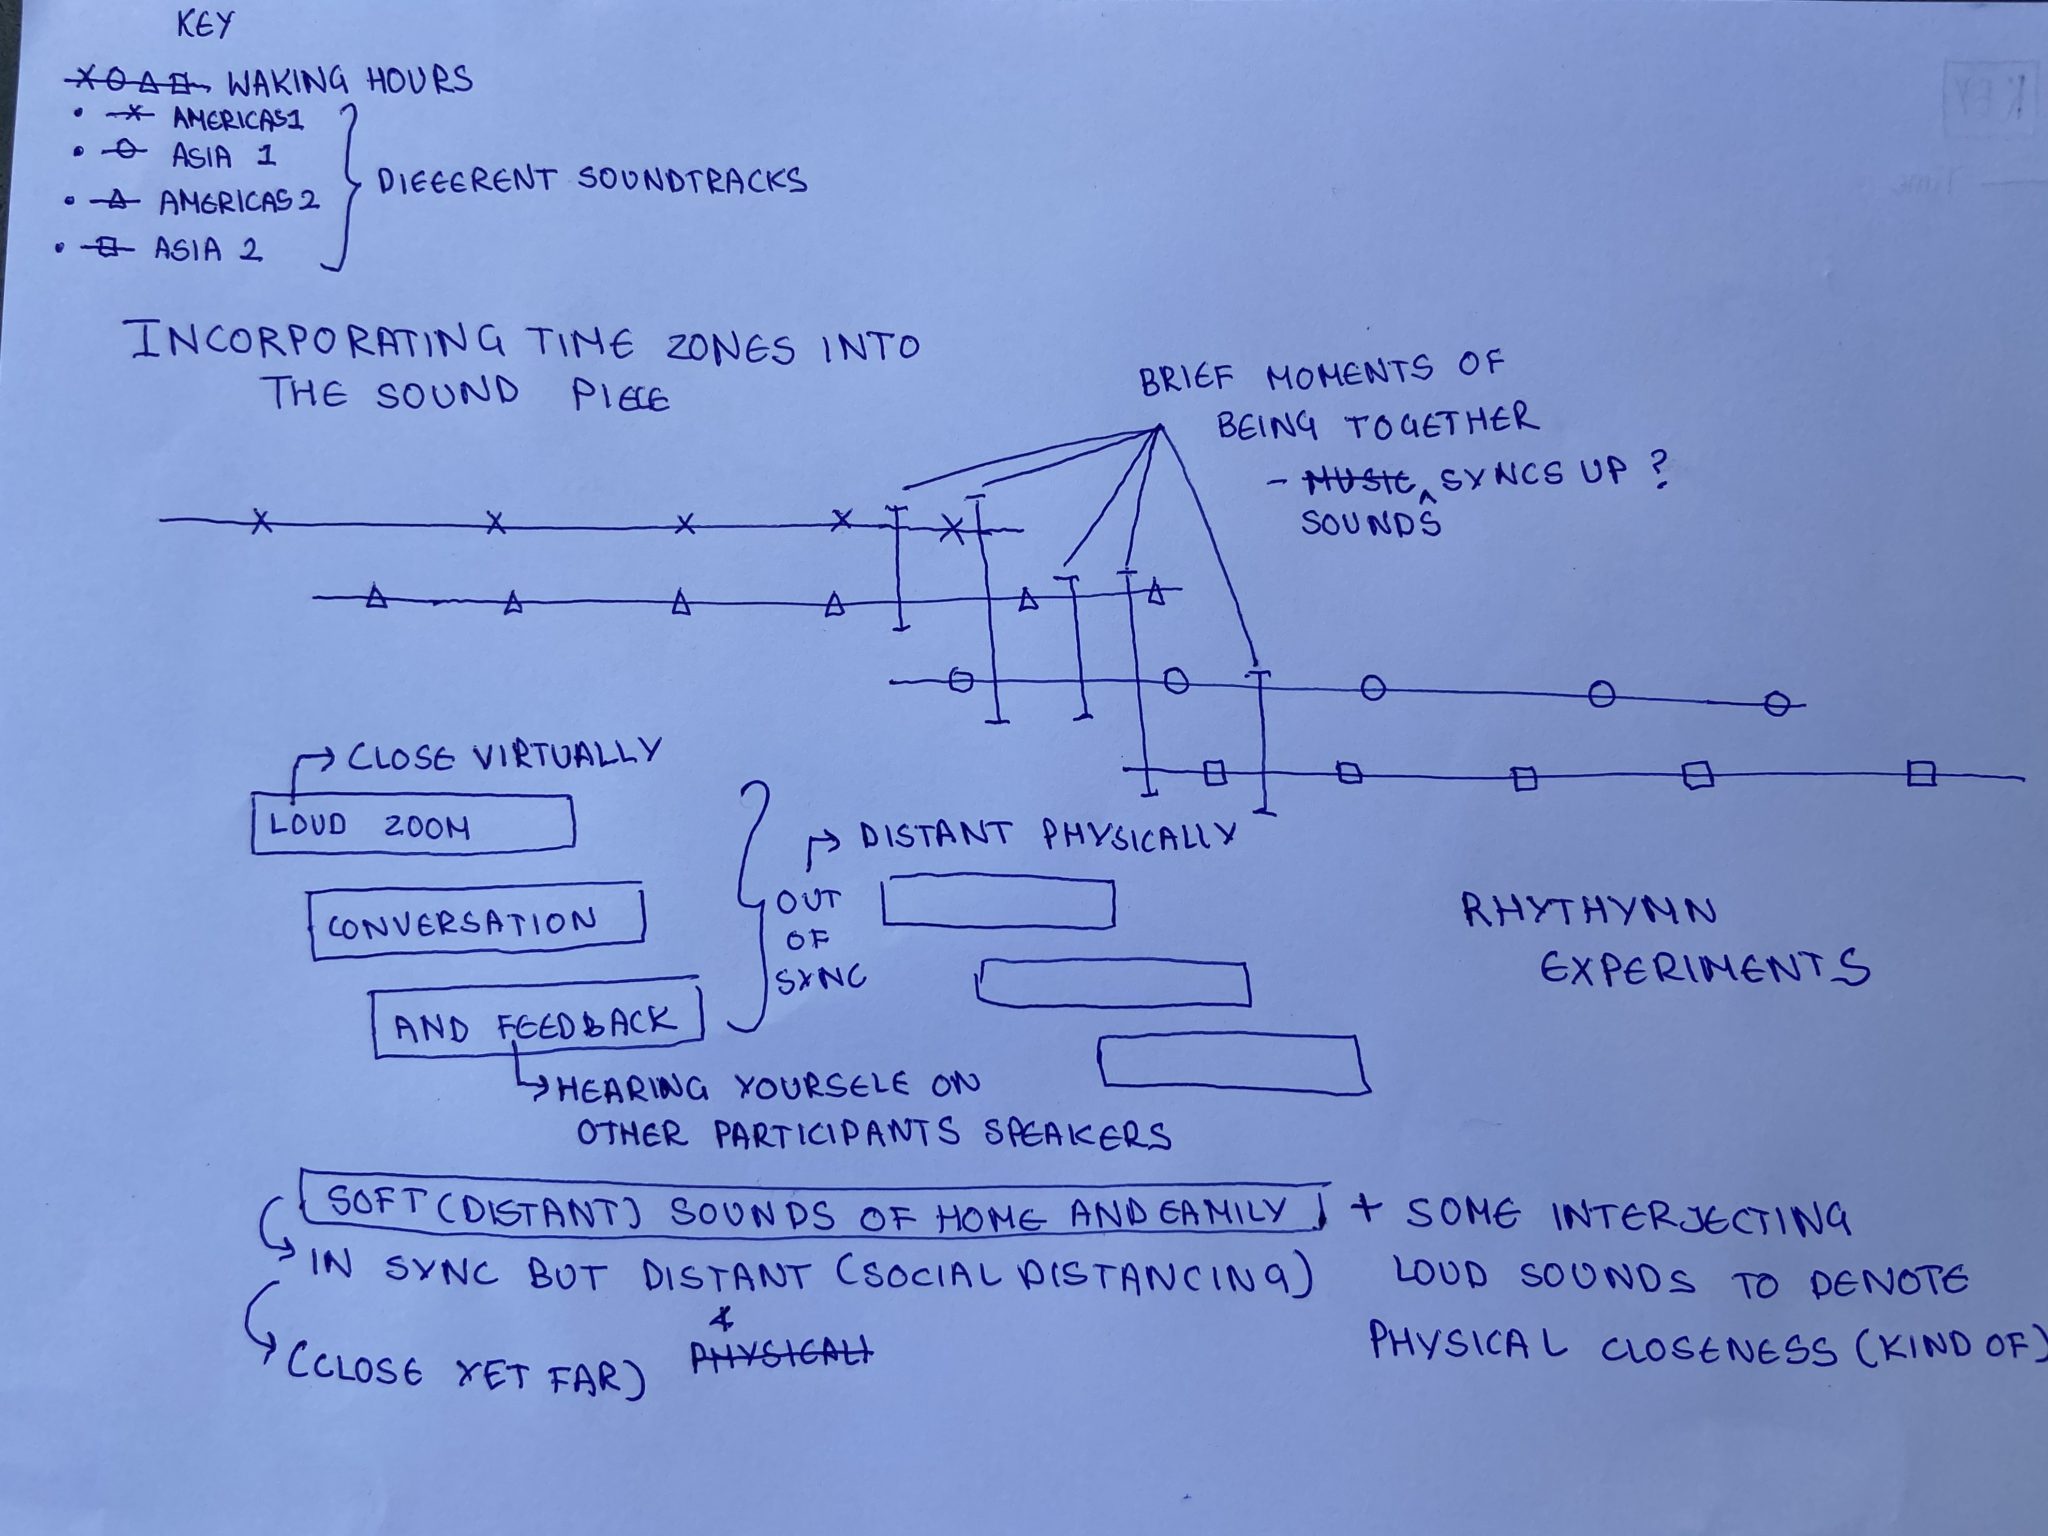 KEY
WAKING HOURS
AMERICAS1
ASIA 1
AMERICAS2
ASIA 2
DIFFERENT SOUNDTRACKS
INCORPORATING TIME ZONES INTO
THE SOUND PIECE
BRIEF MOMENTS OF
BEING TOGETHER
- MUSIC SYNCS UP ?
SOUNDS
CLOSE VIRTUALLY
LOUD ZOOM
CONVERSATION
AND FEEDBACK
OUT
OF
SYNC
DISTANT PHYSICALLY
HEARING YOURSELF ON
OTHER PARTICIPANTS SPEAKERS
RHYTHYMN
EXPERIMENTS
SOFT (DISTANT) SOUNDS OF HOME AND FAMILY
IN SYNC BUT DISTANT (SOCIAL DISTANCING)
(CLOSE YET FAR)
PHYSICALL
+ SOME INTERJECTING
LOUD SOUNDS TO DENOTE
PHYSICAL CLOSENESS (KIND OF)
KEY